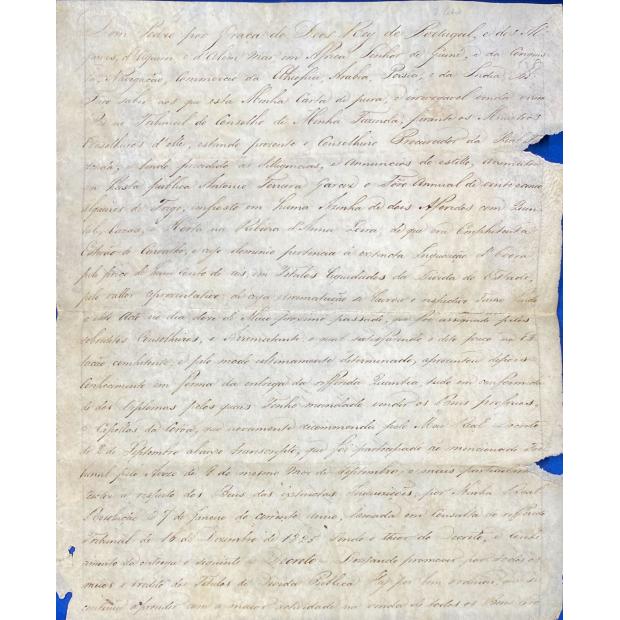 Dom Pedro por Graça de Deos, Rey de Portugal, e dos Al
garves, d'Aquem, e d'Alem Mar, em Africa Senhor de Guiné, e da Conquis
ta, Navegação, Commercio da Ethiopia, Arabia, Persia, e da India &
Faço saber aos que esta Minha Carta de pura, e irrevogavel venda virem
que no Tribunal do Conselho da Minha Fazenda, perante os Ministros
Conselheiros d'elle, estando prezente o Conselheiro Procurador da Real Fa
zenda, e tendo precedido as Diligencias, e Annuncios do estillo, Arrematou
na Hasta publica Antonio Ferreira Garcez o Foro Annual de vinte
alqueires de Trigo, imposto em huma Azenha de dois Aferidos com
Cazas, e Horta na Ribeira d'Anna Loura, de que era Emphiteuta
Estevão de Carvalho, e cujo dominio pertencia á extincta Inquisição d'Evora
pelo preço de hum Conto de reis, em Titulos Liquidados da Divida do Estado,
pelo vallor reprezentativo, de cuja arrematação se lavrou o respectivo
e dito Auto no dia doze de Maio proximo passado, que foi assignado pelos
sobreditos Conselheiros, e Arrematante, o qual satisfazendo o dito preço na Es
tação competente, e pelo modo ultimamente determinado, aprezentou depois
Conhecimento em forma da entrega da refferida Quantia, tudo em conformida
de dos Diplomas pelos quaes Tenho mandado vender os Bens proprios,
e Capellas da Coroa, que novamente recommendado pelo Meu Real Decreto
de 2 de Septembro abaixo transcripto, que foi participado ao mencionado Tri
bunal pelo Avizo de 6 do mesmo Mez de Septembro, e mais particularmente
a respeito dos Bens das extinctas Inquisições, por Minha Real
Resolução de 7 de Janeiro do corrente anno, tomada em Consulta do refferido
Tribunal de 16 de Dezembro de 1825 sendo o theor do Decreto, e conhe
cimento da entrega o seguinte = Decreto = Dezejando promover por todos os
meios o credito dos Titulos de Divida Publica Hey por bem ordenar, que se
continue a proceder com a maior actividade na venda de todos os Bens